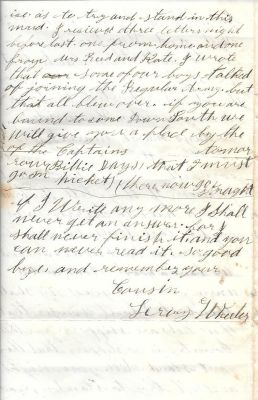 ise as to try and stand in this
mud. I received three letters night
before last. one from home and one
from Mrs Reed and Kate. I wrote
that some of our boys talked
of joining the Regular Army but
that all blew over. if you are
bound to some down South we
will give you a place by the
of the Captains tomor
row Billie Days that I must
go on picket) (there now
if I Write any more I Shall
never get an answer. for I
shall never finish it and you
can never read it. so good
bye and remember your
Cousin
Leroy Wheeler